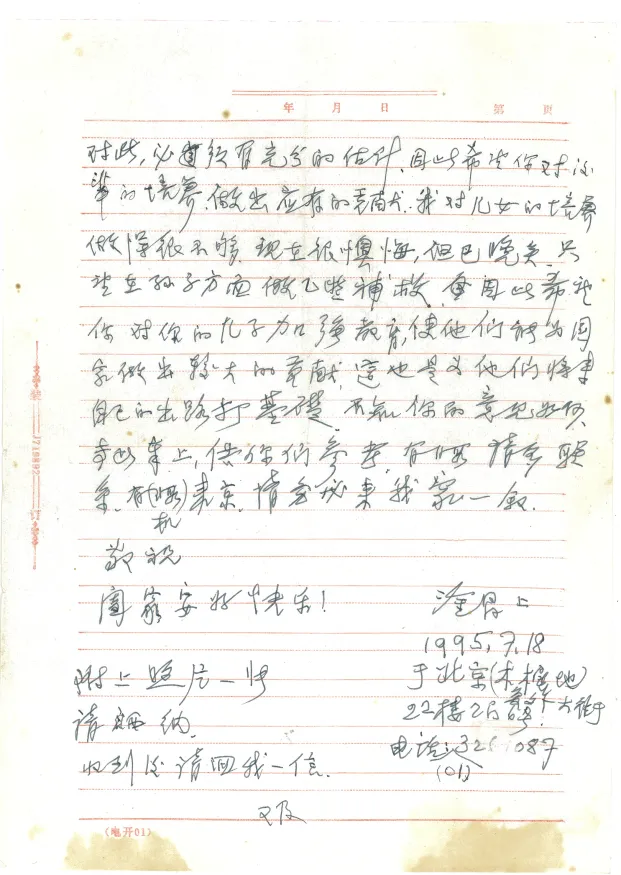 年 月 日 第 页
对此，必须有充分的估计，因此希望你对後
辈的培养，做出应有的贡献，我对儿女的培养
做得很不够，现在很懊悔，但已晚矣，只
望在孙子方面做一些补救，因此希望
你对你的儿子加强教育，使他们能为国
家做出较大的贡献，这也是为他们将来
自己的出路打基础，不知你的意见如何，
寄此上，供你们参考，有暇请多联
系，有(暇)机来京，请务必来我家一叙。
敬祝
阖家安好快乐！
淦昌上
1995，7，18
于北京(木樨地)
22楼2门 号，复外大街
电话：32 087
(01)
附上照片一帧
请哂纳，
收到后请回我一信，
又及
装 订
J719892
《电开01》